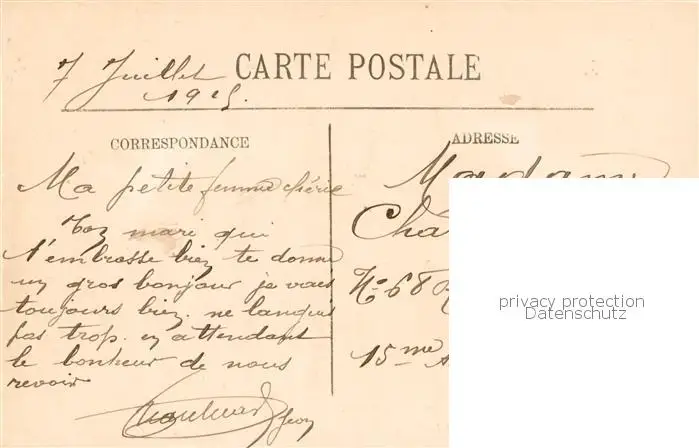 7 Juillet
1915.
CARTE POSTALE
CORRESPONDANCE
Ma petite femme chérie
Ton mari qui
t'embrasse bien te donne
un gros bonjour je vais
toujours bien. ne languis
pas trop. en attendant
le bonheur de nous
revoir
ADRESSE
Madame
Cha
No 68 R
15me A
privacy protection
Datenschutz